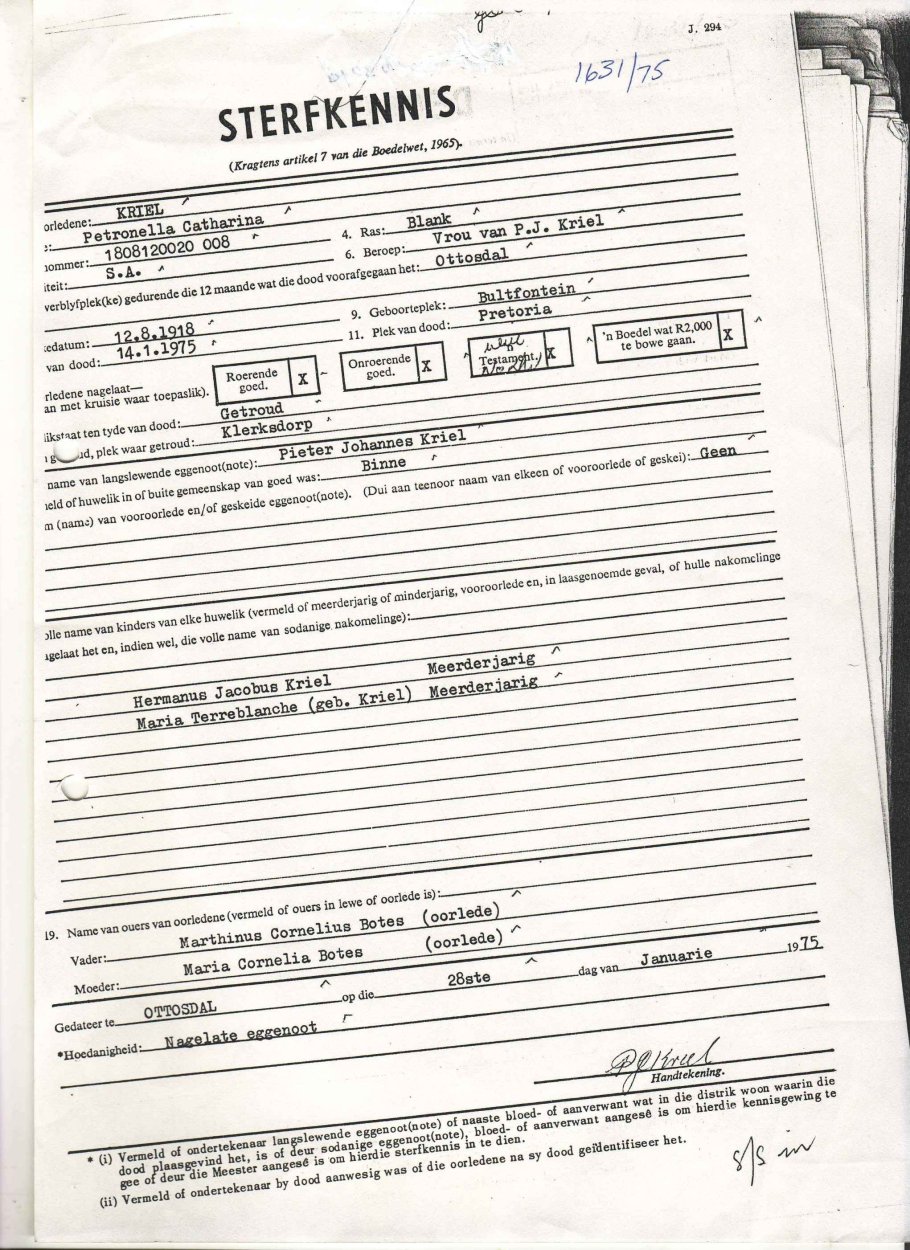 J. 294
1631/75
STERFKENNIS
(Kragtens artikel 7 van die Boedelwet, 1965).
orledene: KRIEL
: Petronella Catharina 4. Ras: Blank
nommer: 1808120020 008 6. Beroep: Vrou van P.J. Kriel
iteit: S.A.
verblyfplek(ke) gedurende die 12 maande wat die dood voorafgegaan het: Ottosdal
9. Geboorteplek: Bultfontein
edatum: 12.8.1918 11. Plek van dood: Pretoria
van dood: 14.1.1975
rledene nagelaat— Roerende goed. X Onroerende goed. X Testament. X 'n Boedel wat R2,000 te bowe gaan. X
an met kruisie waar toepaslik).
likstaat ten tyde van dood: Getroud
ud, plek waar getroud: Klerksdorp
name van langslewende eggenoot(note): Pieter Johannes Kriel
eld of huwelik in of buite gemeenskap van goed was: Binne
m (name) van vooroorlede en/of geskeide eggenoot(note). (Dui aan teenoor naam van elkeen of vooroorlede of geskei): Geen
olle name van kinders van elke huwelik (vermeld of meerderjarig of minderjarig, vooroorlede en, in laasgenoemde geval, of hulle nakomelinge
agelaat het en, indien wel, die volle name van sodanige nakomelinge):
Hermanus Jacobus Kriel Meerderjarig
Maria Terreblanche (geb. Kriel) Meerderjarig
19. Name van ouers van oorledene (vermeld of ouers in lewe of oorlede is):
Vader: Marthinus Cornelius Botes (oorlede)
Moeder: Maria Cornelia Botes (oorlede)
Gedateer te OTTOSDAL op die 28ste dag van Januarie 1975
*Hoedanigheid: Nagelate eggenoot
PJ Kriel
Handtekening.
* (i) Vermeld of ondertekenaar langslewende eggenoot(note) of naaste bloed- of aanverwant wat in die distrik woon waarin die
dood plaasgevind het, is of deur sodanige eggenoot(note), bloed- of aanverwant aangesê is om hierdie kennisgewing te
gee of deur die Meester aangesê is om hierdie sterfkennis in te dien.
(ii) Vermeld of ondertekenaar by dood aanwesig was of die oorledene na sy dood geïdentifiseer het.